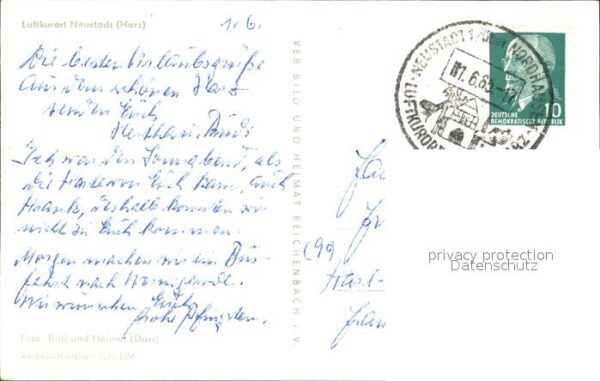 Luftkurort Neustadt (Harz)
1.6.
Die besten Urlaubsgrüße
aus dem schönen Harz
senden Euch
Ich war den Sonnabend, als
die Karte von Euch kam, auch
krank, deshalb konnten wir
nicht zu Euch kommen.
Morgen machen wir ein Bus-
fahrt nach Wernigerode.
Wir wünschen Euch
frohe Pfingsten.
Foto: Bild und Heimat (Dorr)
Verbraucherpreis 0,15 DM
VEB BILD UND HEIMAT REICHENBACH I. V.
NEUSTADT
NORDHAUSEN
LUFTKURORT
1.6.63
10
DEUTSCHE
DEMOKRATISCHE REPUBLIK
(90)
Karl-
privacy protection
Datenschutz